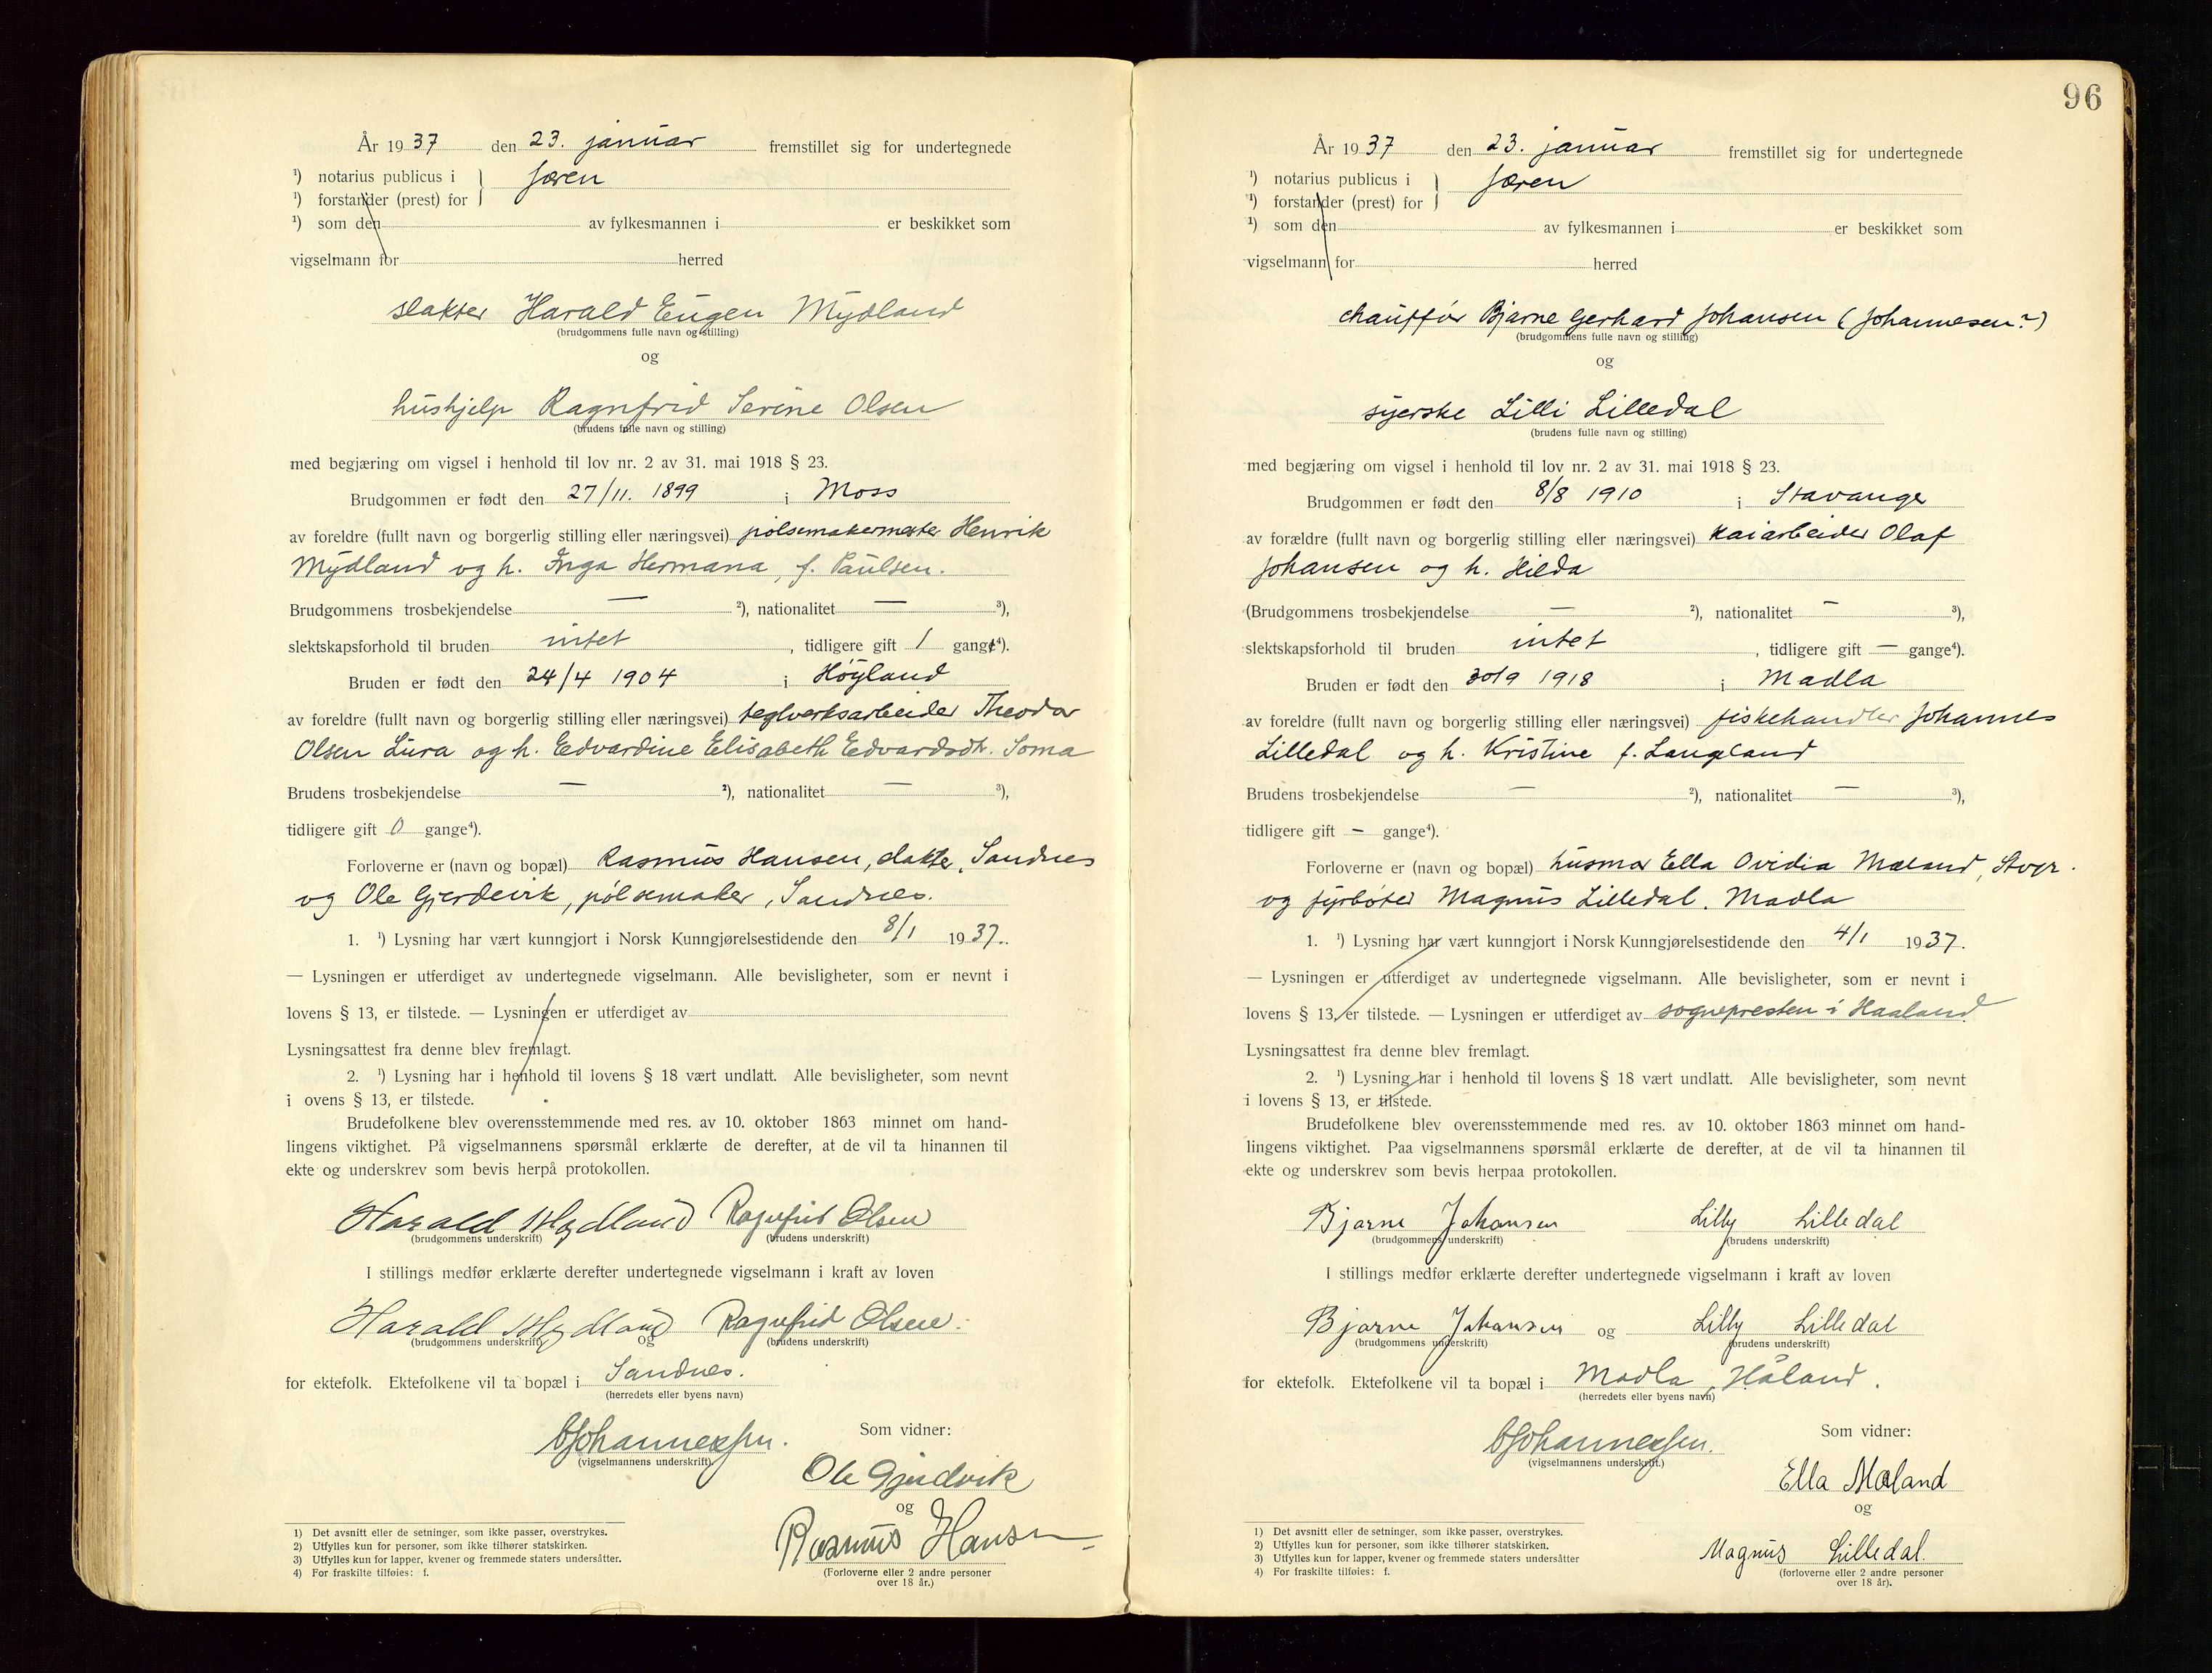 År 1937 den 23. januar fremstillet sig for undertegnede
¹) notarius publicus i } Jæren
¹) forstander (prest) for
¹) som den av fylkesmannen i er beskikket som
vigselmann for herred
slakter Harald Eugen Mydland
(brudgommens fulle navn og stilling)
og
hushjelp Ragnfrid Serine Olsen
(brudens fulle navn og stilling)
med begjæring om vigsel i henhold til lov nr. 2 av 31. mai 1918 § 23.
Brudgommen er født den 27/11. 1899 i Moss
av foreldre (fullt navn og borgerlig stilling eller næringsvei) pølsemakermester Henrik
Mydland og h. Inga Hermana, f. Paulsen.
Brudgommens trosbekjendelse — ²), nationalitet — ³),
slektskapsforhold til bruden intet, tidligere gift 1 gange⁴).
Bruden er født den 24/4 1904 i Høyland
av foreldre (fullt navn og borgerlig stilling eller næringsvei) teglverksarbeider Theodor
Olsen Lura og h. Edvardine Elisabeth Edvardsdtr. Soma
Brudens trosbekjendelse — ²), nationalitet — ³),
tidligere gift 0 gange⁴).
Forloverne er (navn og bopæl) Rasmus Hansen, slakter, Sandnes
og Ole Gjerdevik, pølsemaker, Sandnes.
1. ¹) Lysning har vært kunngjort i Norsk Kunngjørelsestidende den 8/1 1937.
— Lysningen er utferdiget av undertegnede vigselmann. Alle bevisligheter, som er nevnt i
lovens § 13, er tilstede. — Lysningen er utferdiget av
Lysningsattest fra denne blev fremlagt.
2. ¹) Lysning har i henhold til lovens § 18 vært undlatt. Alle bevisligheter, som nevnt
i ovens § 13, er tilstede.
Brudefolkene blev overensstemmende med res. av 10. oktober 1863 minnet om hand-
lingens viktighet. På vigselmannens spørsmål erklærte de derefter, at de vil ta hinannen til
ekte og underskrev som bevis herpå protokollen.
Harald Mydland Ragnfrid Olsen
(brudgommens underskrift) (brudens underskrift)
I stillings medfør erklærte derefter undertegnede vigselmann i kraft av loven
Harald Mydland og Ragnfrid Olsen.
(brudgommens underskrift) (brudens underskrift)
for ektefolk. Ektefolkene vil ta bopæl i Sandnes.
(herredets eller byens navn)
Johannessen. Som vidner:
(vigselmannens underskrift)
Ole Gjerdvik
og
Rasmus Hansen
(Forloverne eller 2 andre personer
over 18 år.)
1) Det avsnitt eller de setninger, som ikke passer, overstrykes.
2) Utfylles kun for personer, som ikke tilhører statskirken.
3) Utfylles kun for lapper, kvener og fremmede staters undersåtter.
4) For fraskilte tilføies: f.
96
År 1937 den 23. januar fremstillet sig for undertegnede
¹) notarius publicus i } Jæren
¹) forstander (prest) for
¹) som den av fylkesmannen i er beskikket som
vigselmann for herred
chauffør Bjarne Gerhard Johansen (Johannesen?)
(brudgommens fulle navn og stilling)
og
syerske Lilli Lilledal
(brudens fulle navn og stilling)
med begjæring om vigsel i henhold til lov nr. 2 av 31. mai 1918 § 23.
Brudgommen er født den 8/8 1910 i Stavanger
av forældre (fullt navn og borgerlig stilling eller næringsvei) kaiarbeider Olaf
Johansen og h. Hilda
(Brudgommens trosbekjendelse — ²), nationalitet — ³),
slektskapsforhold til bruden intet, tidligere gift — gange⁴).
Bruden er født den 30/9 1918 i Madla
av foreldre (fullt navn og borgerlig stilling eller næringsvei) fiskehandler Johannes
Lilledal og h. Kristine f. Langeland
Brudens trosbekjendelse — ²), nationalitet — ³),
tidligere gift – gange⁴).
Forloverne er (navn og bopæl) husmor Ella Ovidia Mæland, Stvgr.
og fyrbøter Magnus Lilledal, Madla
1. ¹) Lysning har vært kunngjort i Norsk Kunngjørelsestidende den 4/1 1937.
— Lysningen er utferdiget av undertegnede vigselmann. Alle bevisligheter, som er nevnt i
lovens § 13, er tilstede. — Lysningen er utferdiget av sognepresten i Haaland
Lysningsattest fra denne blev fremlagt.
2. ¹) Lysning har i henhold til lovens § 18 vært undlatt. Alle bevisligheter, som nevnt
i lovens § 13, er tilstede.
Brudefolkene blev overensstemmende med res. av 10. oktober 1863 minnet om hand-
lingens viktighet. Paa vigselmannens spørsmål erklærte de derefter, at de vil ta hinannen til
ekte og underskrev som bevis herpaa protokollen.
Bjarne Johansen Lilly Lilledal
(brudgommens underskrift) (brudens underskrift)
I stillings medfør erklærte derefter undertegnede vigselmann i kraft av loven
Bjarne Johansen og Lilly Lilledal
(brudgommens underskrift) (brudens underskrift)
for ektefolk. Ektefolkene vil ta bopæl i Madla, Håland.
(herredets eller byens navn)
Johannessen. Som vidner:
(vigselmannens underskrift.)
Ella Mæland
og
Magnus Lilledal.
(forloverne eller 2 andre personer
over 18 år).
1) Det avsnitt eller de setninger, som ikke passer, overstrykes.
2) Utfylles kun for personer, som ikke tilhører statskirken.
3) Utfylles kun for lapper, kvener og fremmede staters undersåtter
4) For fraskilte tilføies: f.